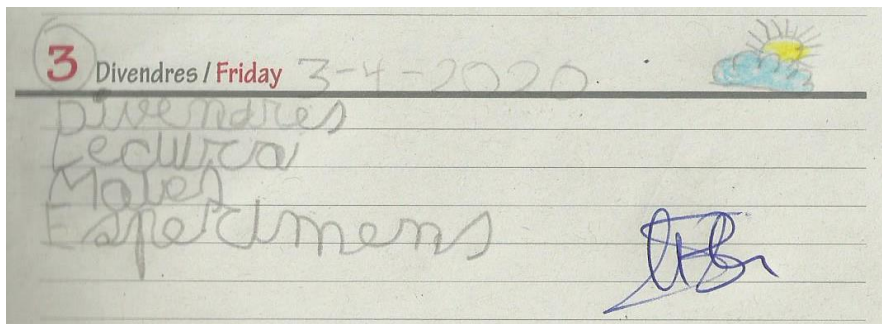 3 Divendres / Friday 3-4-2020
Divendres
Lectura
Mates
Esperimens